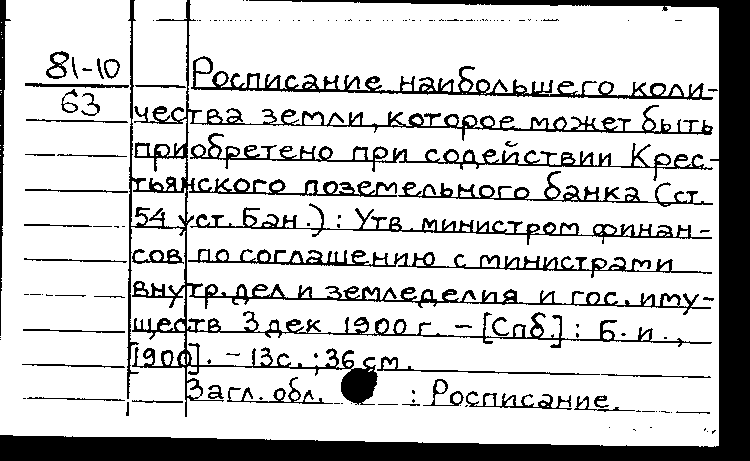 81-10
63
Росписание наибольшего коли-
чества земли, которое может быть
приобретено при содействии Крес-
тьянского поземельного банка (ст.
54 уст. Бан.) : Утв. министром финан-
сов по соглашению с министрами
внутр. дел и земледелия и гос. иму-
ществ 3 дек 1900 г. – [Спб.] : Б. и.,
[1900]. – 13 с. ; 36 см.
Загл. обл. : Росписание.